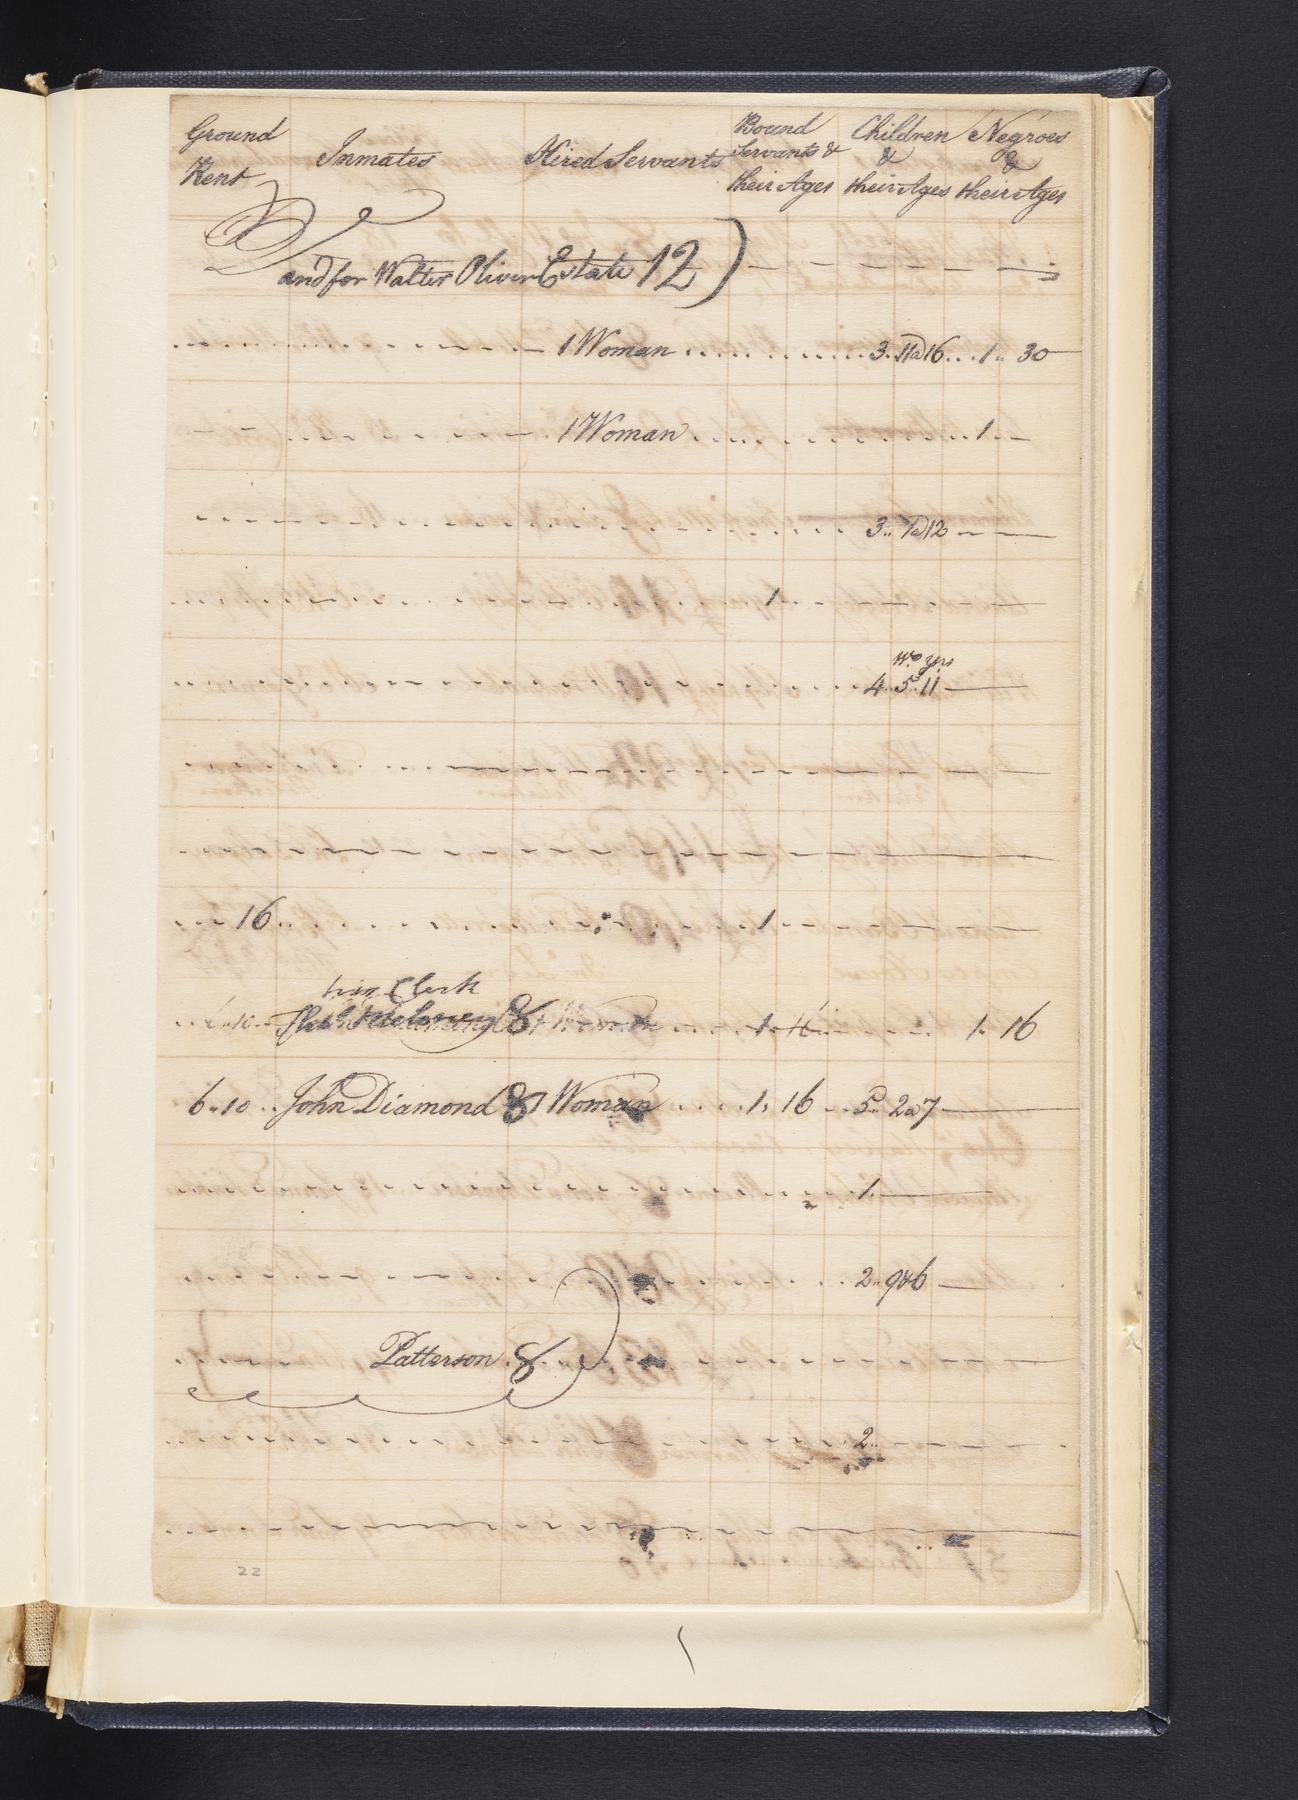 Ground Rent
Inmates
Hired Servants
Bound Servants & their Ages
Children & their Ages
Negroes & their Ages
and for Walter Oliver Estate 12
1 Woman 3.. 11 a 16 1.. 30
1 Woman 1..
3.. 12
1
Wo yrs
4.. 5.. 11
16 1
Clerk
10 8 1.. 16
6.. 10 John Diamond 8 1 Woman 1.. 16 5.. 2 a 7
1.
2.. 9 & 6
Patterson 8
2..
22